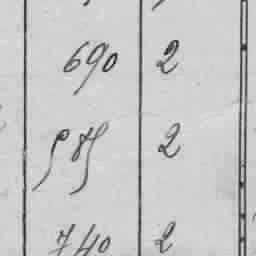 690 2
585 2
740 2